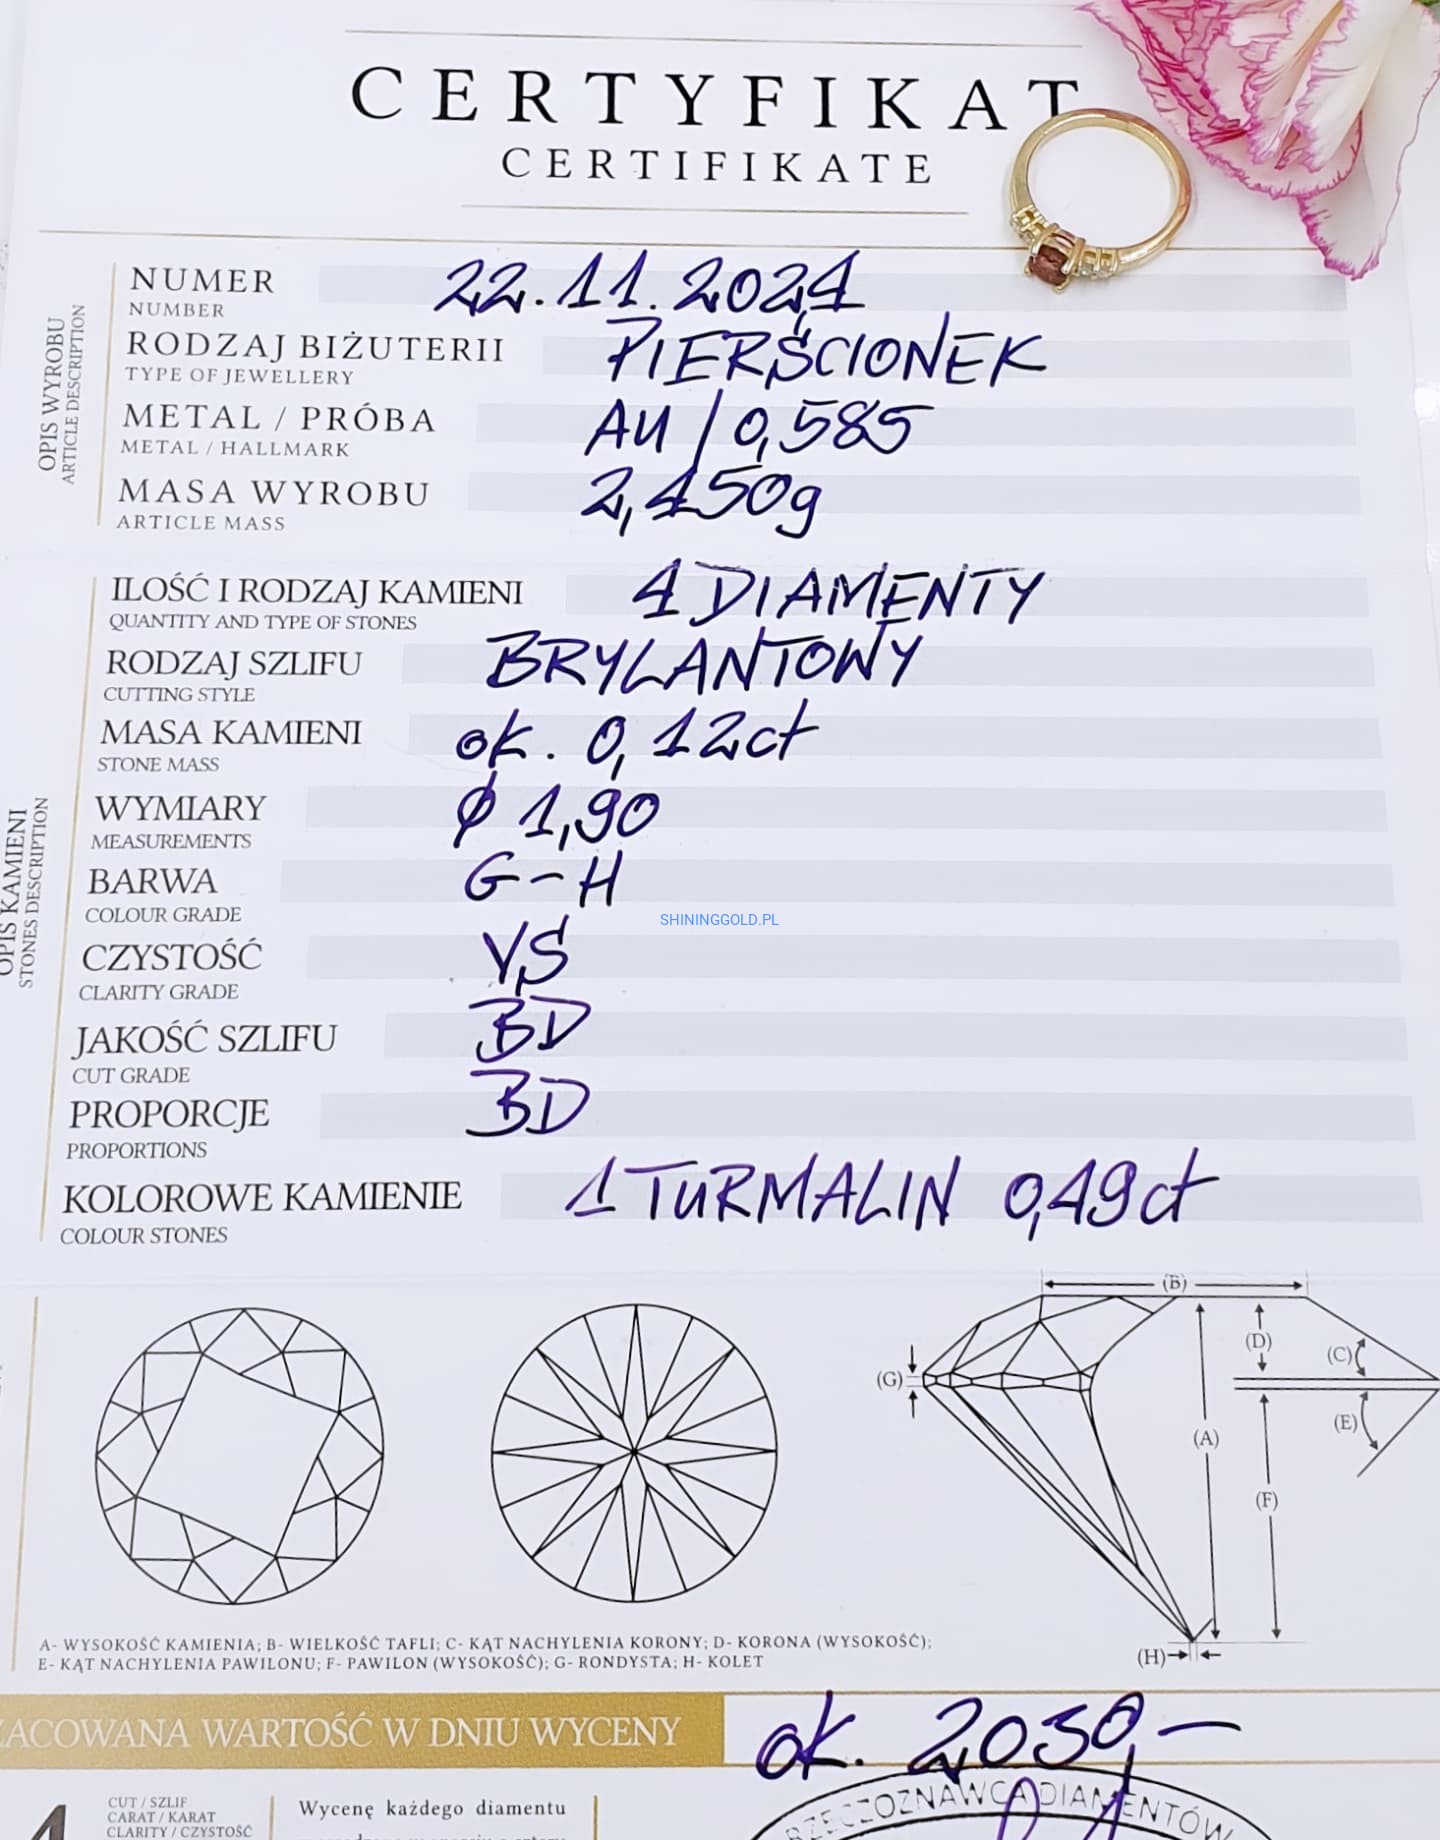 CERTYFIKAT
CERTIFIKATE
OPIS WYROBU
ARTICLE DESCRIPTION
NUMER 22.11.2024
NUMBER
RODZAJ BIŻUTERII PIERŚCIONEK
TYPE OF JEWELLERY
METAL / PRÓBA AU / 0,585
METAL / HALLMARK
MASA WYROBU 2,450g
ARTICLE MASS
OPIS KAMIENI
STONES DESCRIPTION
ILOŚĆ I RODZAJ KAMIENI 4 DIAMENTY
QUANTITY AND TYPE OF STONES
RODZAJ SZLIFU BRYLANTOWY
CUTTING STYLE
MASA KAMIENI ok. 0,12ct
STONE MASS
WYMIARY ϕ 1,90
MEASUREMENTS
BARWA G-H
COLOUR GRADE
SHININGGOLD.PL
CZYSTOŚĆ VS
CLARITY GRADE
JAKOŚĆ SZLIFU BD
CUT GRADE
PROPORCJE BD
PROPORTIONS
KOLOROWE KAMIENIE 1 TURMALIN 0,49ct
COLOUR STONES
(B)
(D)
(C)
(G)
(E)
(A)
(F)
(H)
A- WYSOKOŚĆ KAMIENIA; B- WIELKOŚĆ TAFLI; C- KĄT NACHYLENIA KORONY; D- KORONA (WYSOKOŚĆ);
E- KĄT NACHYLENIA PAWILONU; F- PAWILON (WYSOKOŚĆ); G- RONDYSTA; H- KOLET
ZACOWANA WARTOŚĆ W DNIU WYCENY ok. 2030,-
4
CUT / SZLIF
CARAT / KARAT
CLARITY / CZYSTOŚĆ
Wycenę każdego diamentu
RZECZOZNAWCA DIAMENTÓW